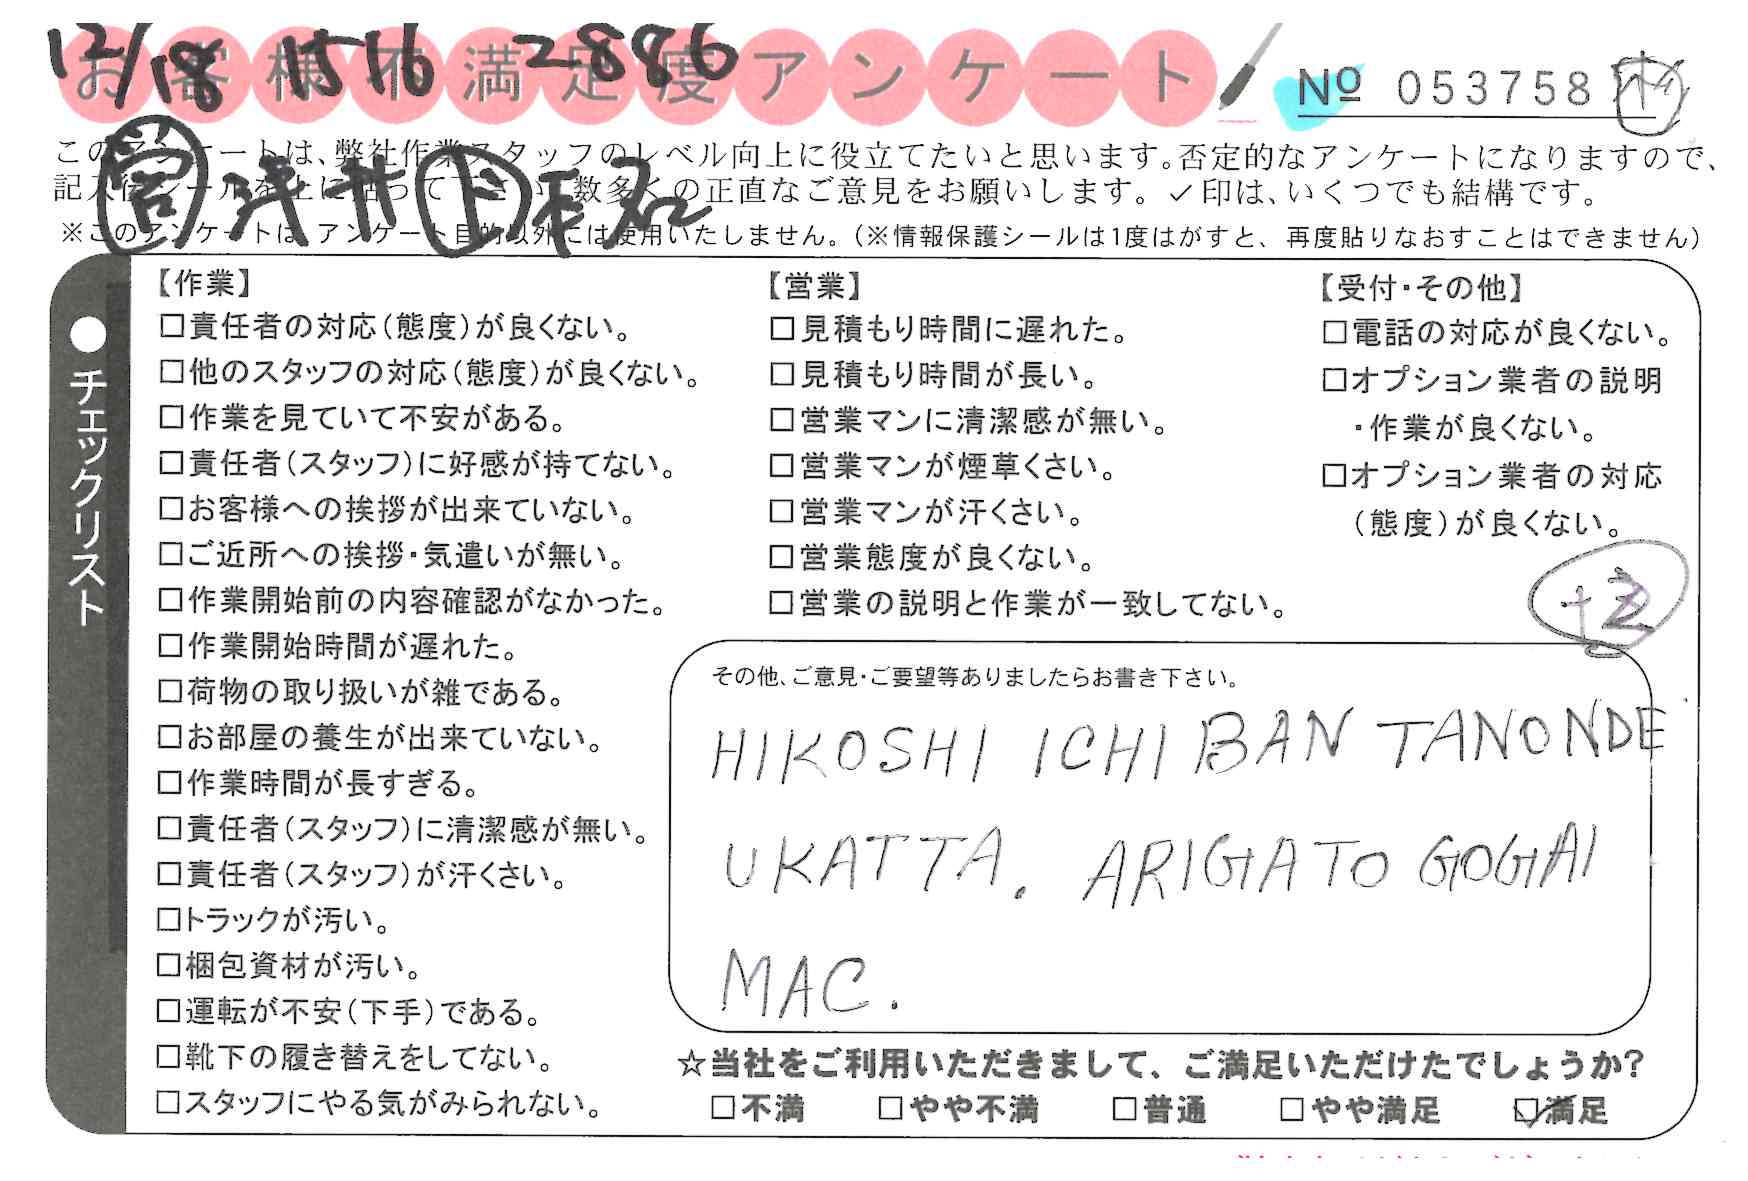 12/18 1516 2886
お客様不満足度アンケート
№ 053758
このアンケートは、弊社作業スタッフのレベル向上に役立てたいと思います。否定的なアンケートになりますので、
記入後シールを上に貼って下さい。数多くの正直なご意見をお願いします。✓印は、いくつでも結構です。
営 浅井 ド
※このアンケートは、アンケート目的以外には使用いたしません。(※情報保護シールは1度はがすと、再度貼りなおすことはできません)
●チェックリスト
【作業】
□責任者の対応(態度)が良くない。
□他のスタッフの対応(態度)が良くない。
□作業を見ていて不安がある。
□責任者(スタッフ)に好感が持てない。
□お客様への挨拶が出来ていない。
□ご近所への挨拶・気遣いが無い。
□作業開始前の内容確認がなかった。
□作業開始時間が遅れた。
□荷物の取り扱いが雑である。
□お部屋の養生が出来ていない。
□作業時間が長すぎる。
□責任者(スタッフ)に清潔感が無い。
□責任者(スタッフ)が汗くさい。
□トラックが汚い。
□梱包資材が汚い。
□運転が不安(下手)である。
□靴下の履き替えをしてない。
□スタッフにやる気がみられない。
【営業】
□見積もり時間に遅れた。
□見積もり時間が長い。
□営業マンに清潔感が無い。
□営業マンが煙草くさい。
□営業マンが汗くさい。
□営業態度が良くない。
□営業の説明と作業が一致してない。
【受付・その他】
□電話の対応が良くない。
□オプション業者の説明
・作業が良くない。
□オプション業者の対応
(態度)が良くない。
その他、ご意見・ご要望等ありましたらお書き下さい。
HIKOSHI ICHI BAN TANONDE
UKATTA. ARIGATO GOGAI
MAC.
☆当社をご利用いただきまして、ご満足いただけたでしょうか?
□不満 □やや不満 □普通 □やや満足 ☑満足